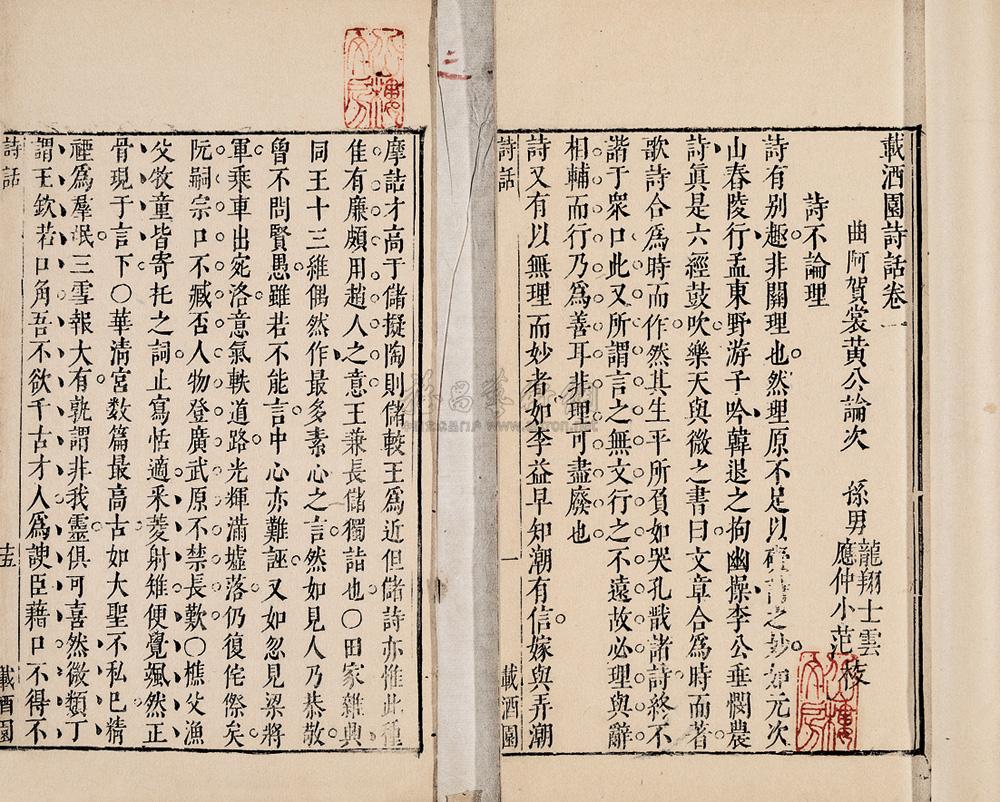 載酒園詩話卷一
曲阿賀裳黃公論次 孫男龍翔士雲應仲小范校
詩不論理
詩有别趣非關理也然理原不足以礙詩之妙如元次
山舂陵行孟東野游子吟韓退之拘幽操李公垂憫農
詩眞是六經鼓吹樂天與微之書曰文章合爲時而著
歌詩合爲時而作然其生平所負如哭孔戡諸詩終不
諧于衆口此又所謂言之無文行之不遠故必理與辭
相輔而行乃爲善耳非理可盡廢也
詩又有以無理而妙者如李益早知潮有信嫁與弄潮
詩話 一 載酒園
三
摩詰才高于儲擬陶則儲較王爲近但儲詩亦惟此種
佳有廉頗用趙人之意王兼長儲獨詣也〇田家雜興
同王十三維偶然作最多素心之言然如見人乃恭敬
曾不問賢愚雖若不能言中心亦難誣又如忽見梁將
軍乘車出宛洛意氣軼道路光輝滿墟落仍復侘傺矣
阮嗣宗口不臧否人物登廣武原不禁長歎〇樵父漁
父牧童皆寄托之詞止寫恬適釆菱射雉便覺颯然正
骨現于言下〇華清宮数篇最高古如大聖不私已精
禋爲羣氓三雪報大有孰謂非我靈俱可喜然微類丁
謂王欽若口角吾不欲千古才人爲諛臣藉口不得不
詩話 十五 載酒園